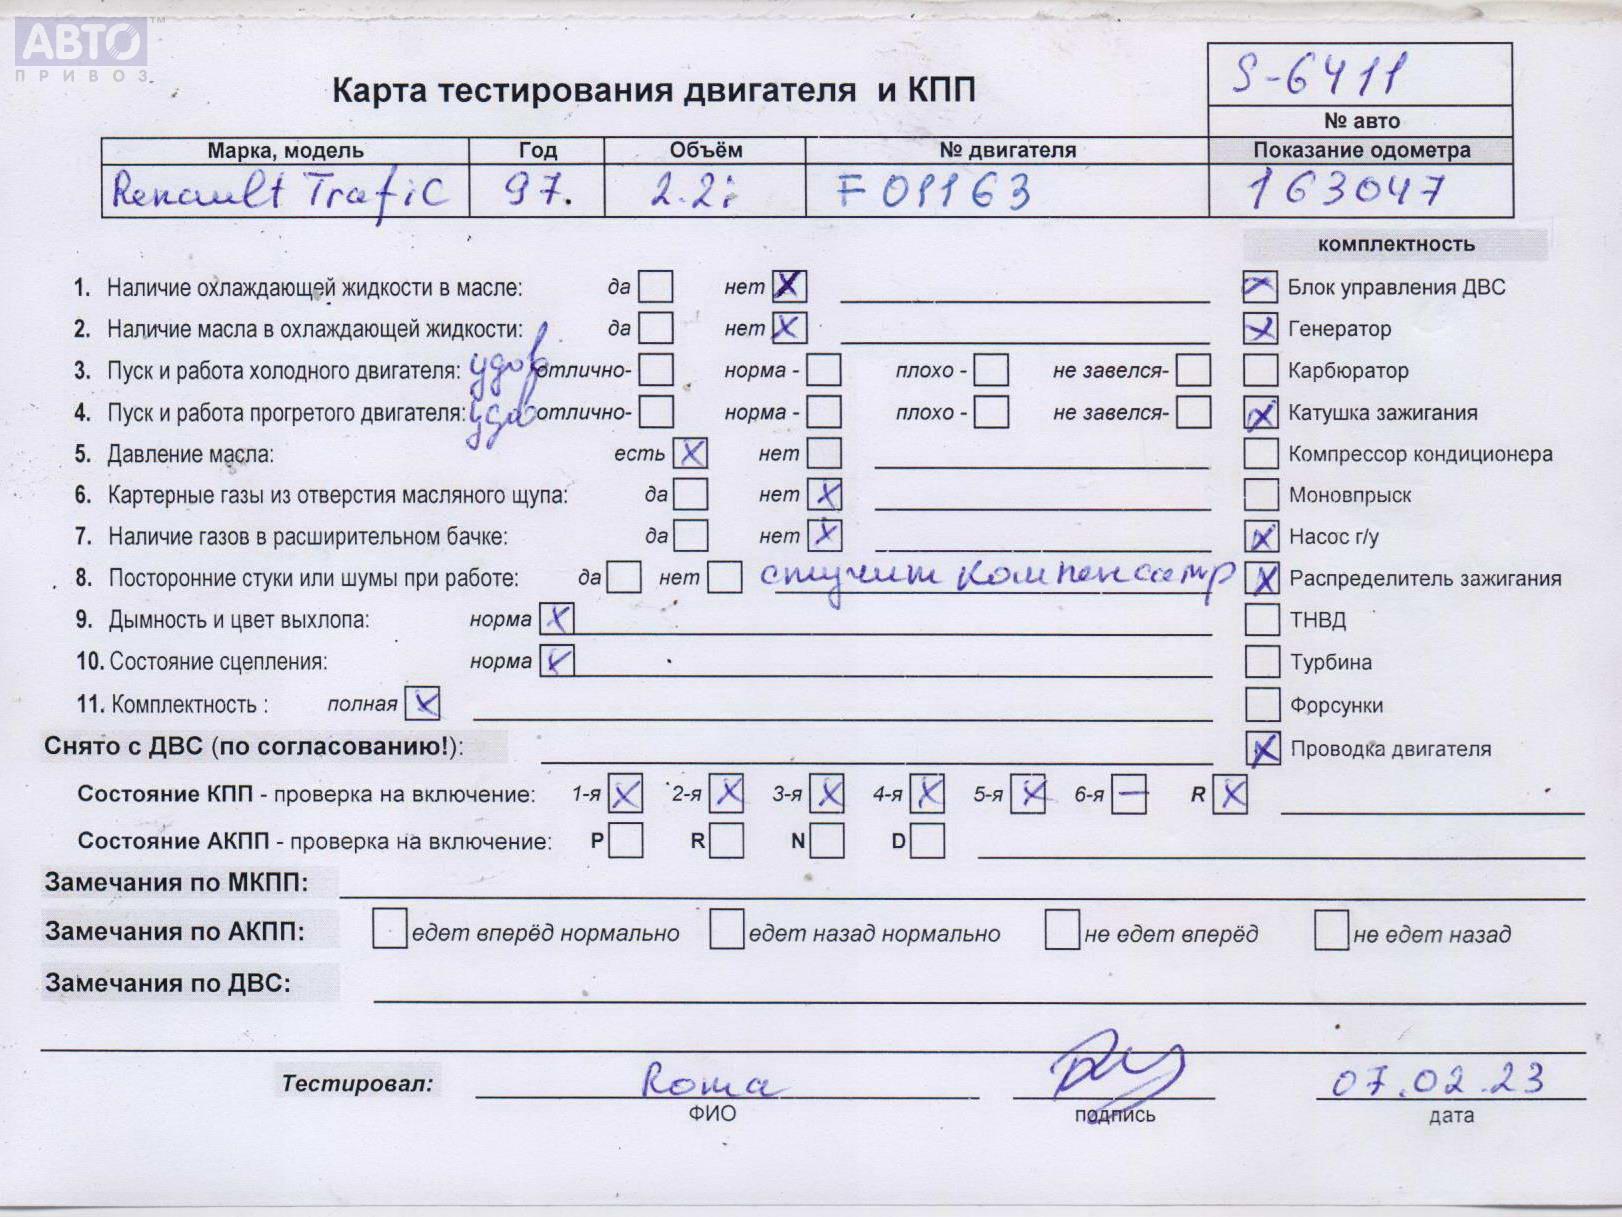 АВТО™
ПРИВОЗ
Карта тестирования двигателя и КПП
S-6411
№ авто
Марка, модель Год Объём № двигателя Показание одометра
Renault Trafic 97. 2.2i F 01163 163047
комплектность
1. Наличие охлаждающей жидкости в масле: да нет X Блок управления ДВС
2. Наличие масла в охлаждающей жидкости: да нет X Генератор
3. Пуск и работа холодного двигателя: удов отлично- норма - плохо - не завелся- Карбюратор
4. Пуск и работа прогретого двигателя: удов отлично- норма - плохо - не завелся- X Катушка зажигания
5. Давление масла: есть X нет Компрессор кондиционера
6. Картерные газы из отверстия масляного щупа: да нет X Моновпрыск
7. Наличие газов в расширительном бачке: да нет X X Насос г/у
8. Посторонние стуки или шумы при работе: да нет стучит компенсатр X Распределитель зажигания
9. Дымность и цвет выхлопа: норма X ТНВД
10. Состояние сцепления: норма X Турбина
11. Комплектность : полная X Форсунки
Снято с ДВС (по согласованию!): X Проводка двигателя
Состояние КПП - проверка на включение: 1-я X 2-я X 3-я X 4-я X 5-я X 6-я — R X
Состояние АКПП - проверка на включение: P R N D
Замечания по МКПП:
Замечания по АКПП: едет вперёд нормально едет назад нормально не едет вперёд не едет назад
Замечания по ДВС:
Тестировал: Roma 07.02.23
ФИО подпись дата